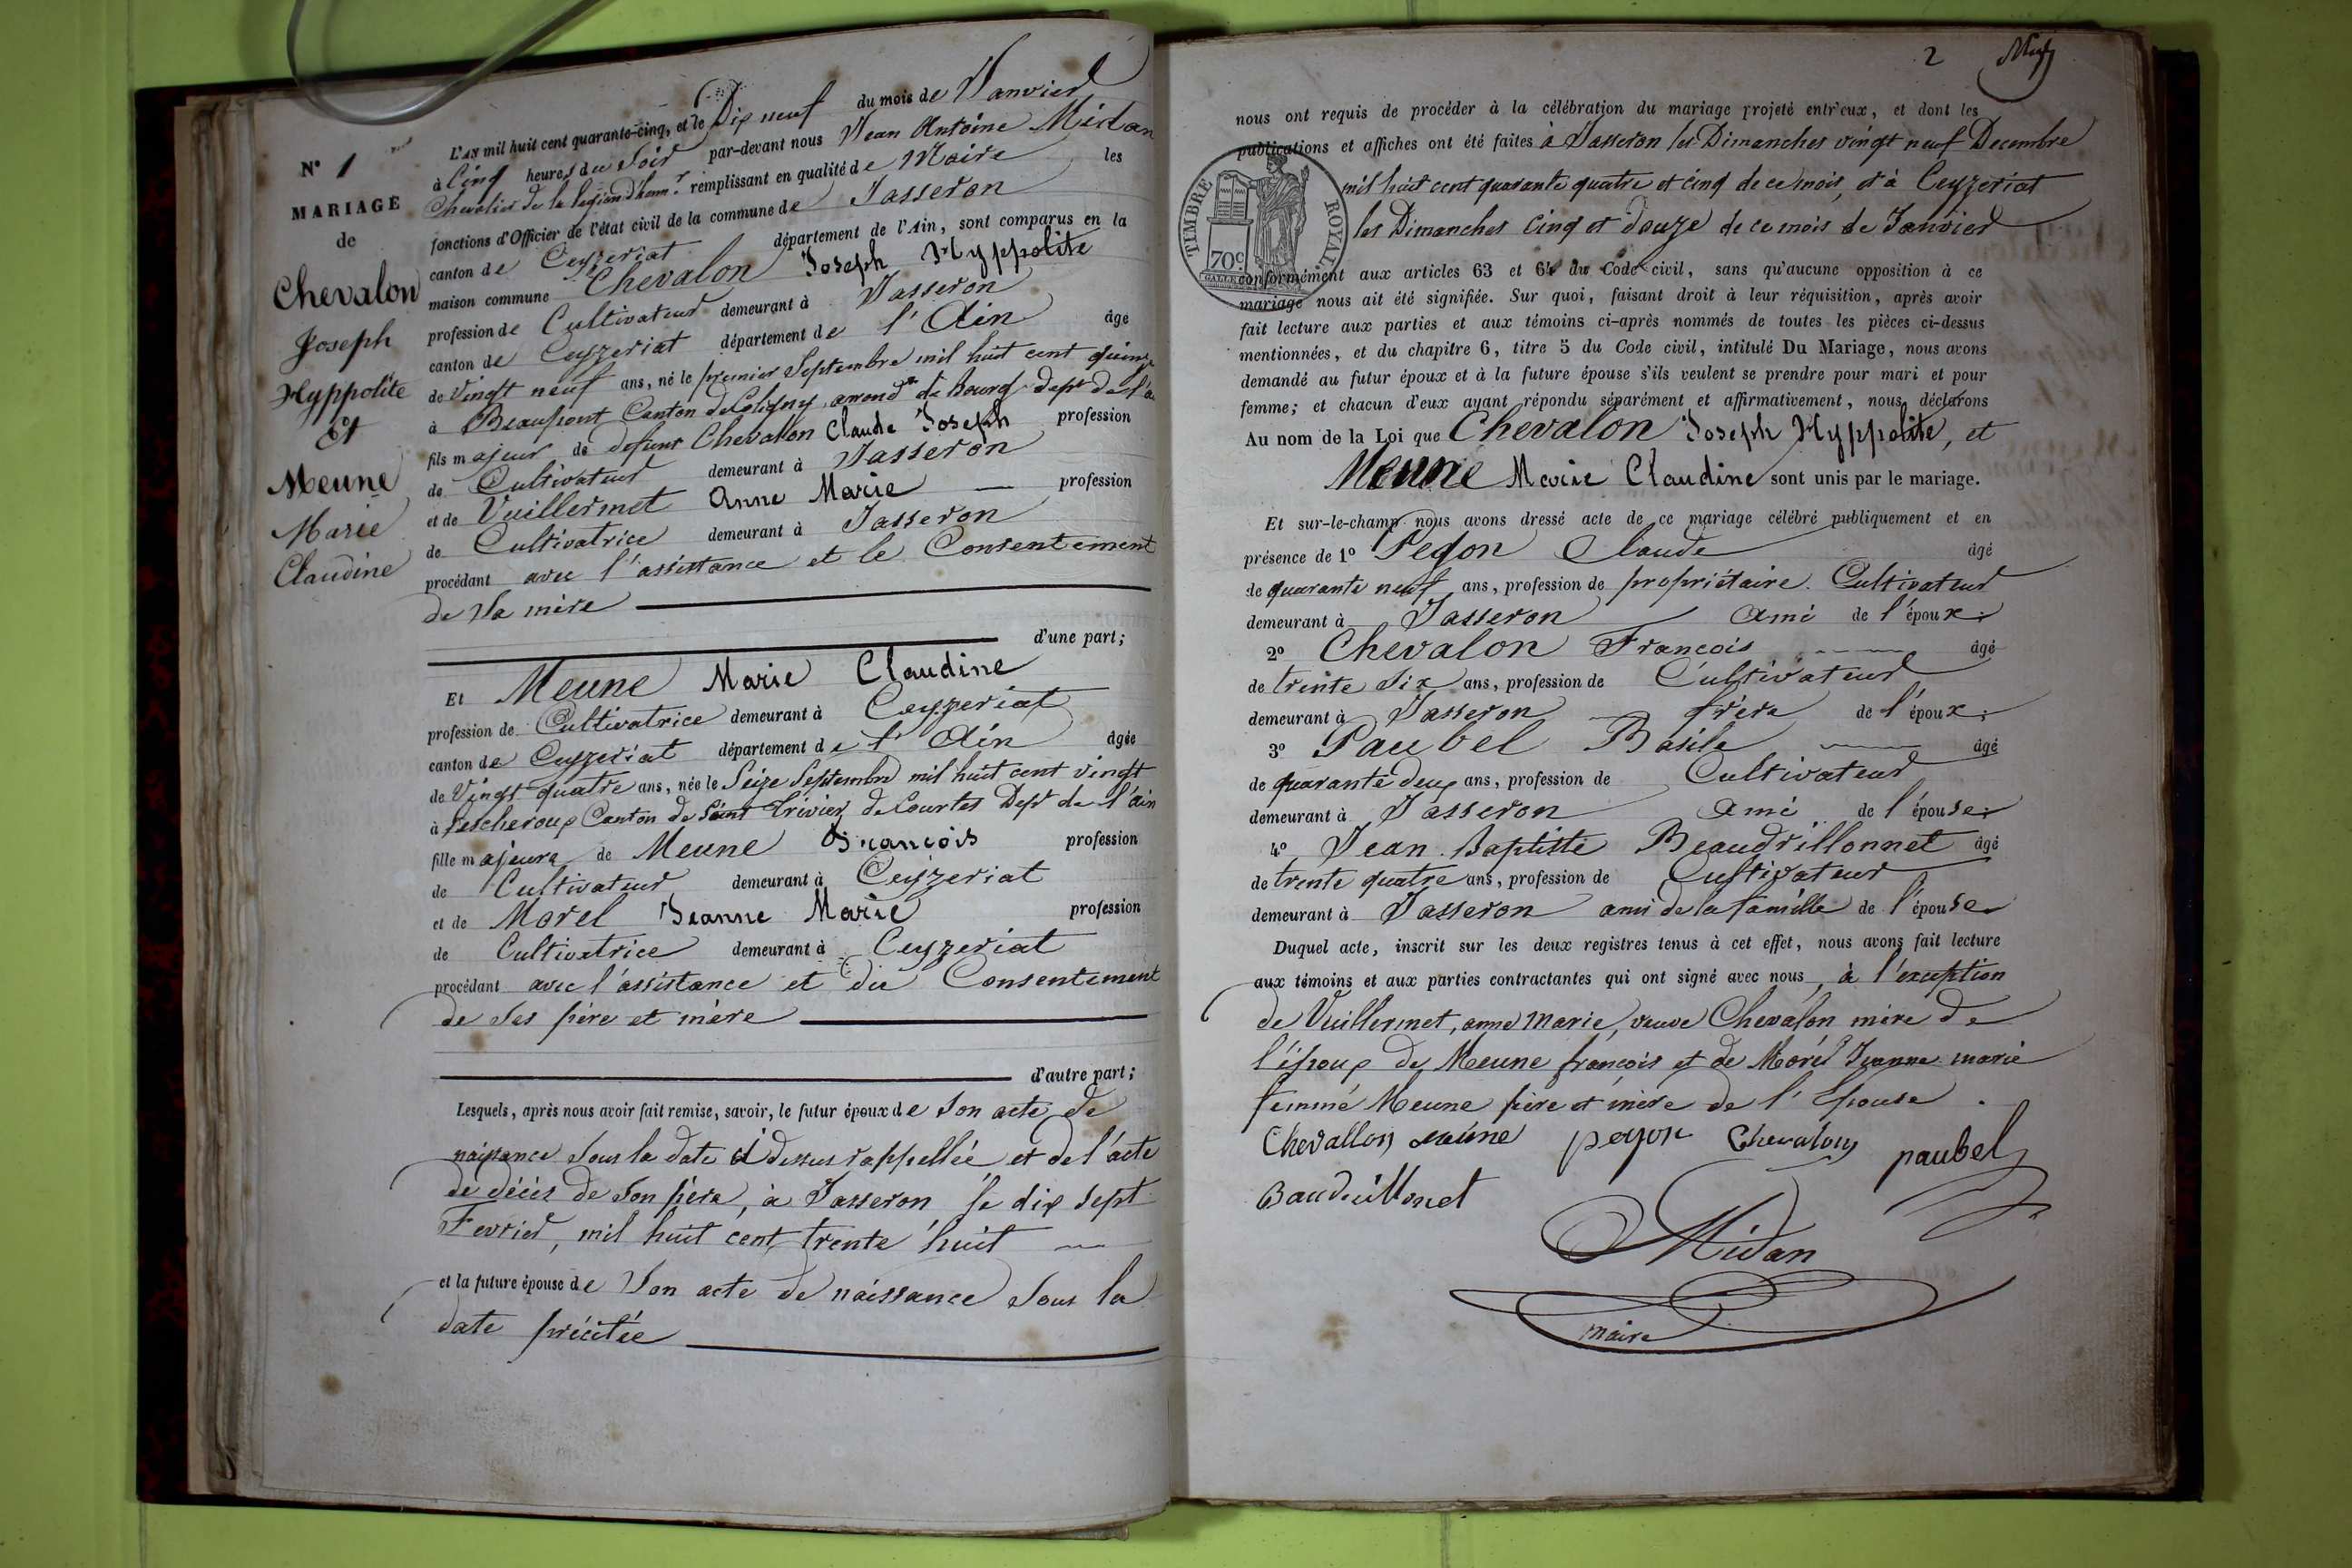 N° 1
MARIAGE
de
Chevalon
Joseph
Hyppolite
Et
Meune
Marie
Claudine
L'AN mil huit cent quarante-cinq, et le Dix neuf du mois de Janvier
à Cinq heures du Soir par-devant nous Jean Antoine Midan
Chevalier de la légion d'honnr remplissant en qualité de Maire les
fonctions d'Officier de l'état civil de la commune de Jasseron
canton de Ceyzeriat département de l'Ain, sont comparus en la
maison commune Chevalon Joseph Hyppolite
profession de Cultivateur demeurant à Jasseron
canton de Ceyzeriat département de l'Ain âgé
de Vingt neuf ans, né le premier Septembre mil huit cent quinze
à Beaupont Canton de Coligny arrondt de Bourg Dept de l'a
fils majeur de defunt Chevalon Claude Joseph profession
de Cultivateur demeurant à Jasseron
et de Vuillermet Anne Marie profession
de Cultivatrice demeurant à Jasseron
procédant avec l'assistance et le Consentement
de Sa mère
d'une part;
Et Meune Marie Claudine
profession de Cultivatrice demeurant à Ceyzeriat
canton de Ceyzeriat département de l'Ain âgée
de Vingt quatre ans, née le Seize Septembre mil huit cent vingt
à Lescheroux Canton de Saint Trivier de Courtes Dept de l'ain
fille majeure de Meune François profession
de Cultivateur demeurant à Ceyzeriat
et de Morel Jeanne Marie profession
de Cultivatrice demeurant à Ceyzeriat
procédant avec l'assistance et du Consentement
de Ses père et mère
d'autre part;
Lesquels, après nous avoir fait remise, savoir, le futur époux de Son acte de
naissance Sous la date ci dessus rappellée et de l'acte
de décès de Son père, à Jasseron le dix Sept
Fevrier, mil huit cent trente huit
et la future épouse de Son acte de naissance Sous la
date précitée
2
nous ont requis de procéder à la célébration du mariage projeté entr'eux, et dont les
publications et affiches ont été faites à Jasseron les Dimanches vingt neuf Decembre
mil huit cent quarante quatre et cinq de ce mois, et à Ceyzeriat
les Dimanches Cinq et douze de ce mois de Janvier
TIMBRE ROYAL
70c
conformément aux articles 63 et 64 du Code civil, sans qu'aucune opposition à ce
mariage nous ait été signifiée. Sur quoi, faisant droit à leur réquisition, après avoir
fait lecture aux parties et aux témoins ci-après nommés de toutes les pièces ci-dessus
mentionnées, et du chapitre 6, titre 5 du Code civil, intitulé Du Mariage, nous avons
demandé au futur époux et à la future épouse s'ils veulent se prendre pour mari et pour
femme; et chacun d'eux ayant répondu séparément et affirmativement, nous déclarons
Au nom de la Loi que Chevalon Joseph Hyppolite, et
Meune Marie Claudine sont unis par le mariage.
Et sur-le-champ nous avons dressé acte de ce mariage célébré publiquement et en
présence de 1° Pegon Claude âgé
de quarante neuf ans, profession de propriétaire Cultivateur
demeurant à Jasseron Ami de l'époux;
2° Chevalon François âgé
de trente Six ans, profession de Cultivateur
demeurant à Jasseron frère de l'époux;
3° Paubel Basile âgé
de quarante deux ans, profession de Cultivateur
demeurant à Jasseron Ami de l'épouse;
4° Jean Baptiste Beaudrillonnet âgé
de trente quatre ans, profession de Cultivateur
demeurant à Jasseron ami de la famille de l'épouse
Duquel acte, inscrit sur les deux registres tenus à cet effet, nous avons fait lecture
aux témoins et aux parties contractantes qui ont signé avec nous, à l'exception
de Vuillermet, anne Marie, veuve Chevalon mère de
l'époux de Meune françois et de Morel Jeanne marie
femme Meune père et mère de l'Epouse.
Chevallon meune pegon Chevalon paubel
Baudrillonet
Midan
maire